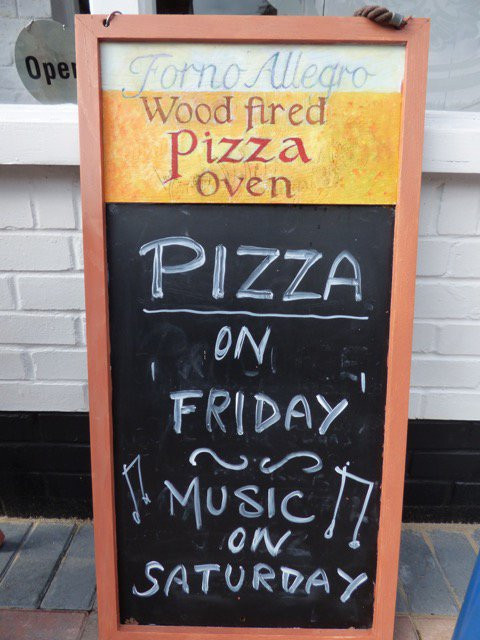 Open
Forno Allegro
Wood fired
Pizza
Oven
PIZZA
ON
FRIDAY
MUSIC
ON
SATURDAY